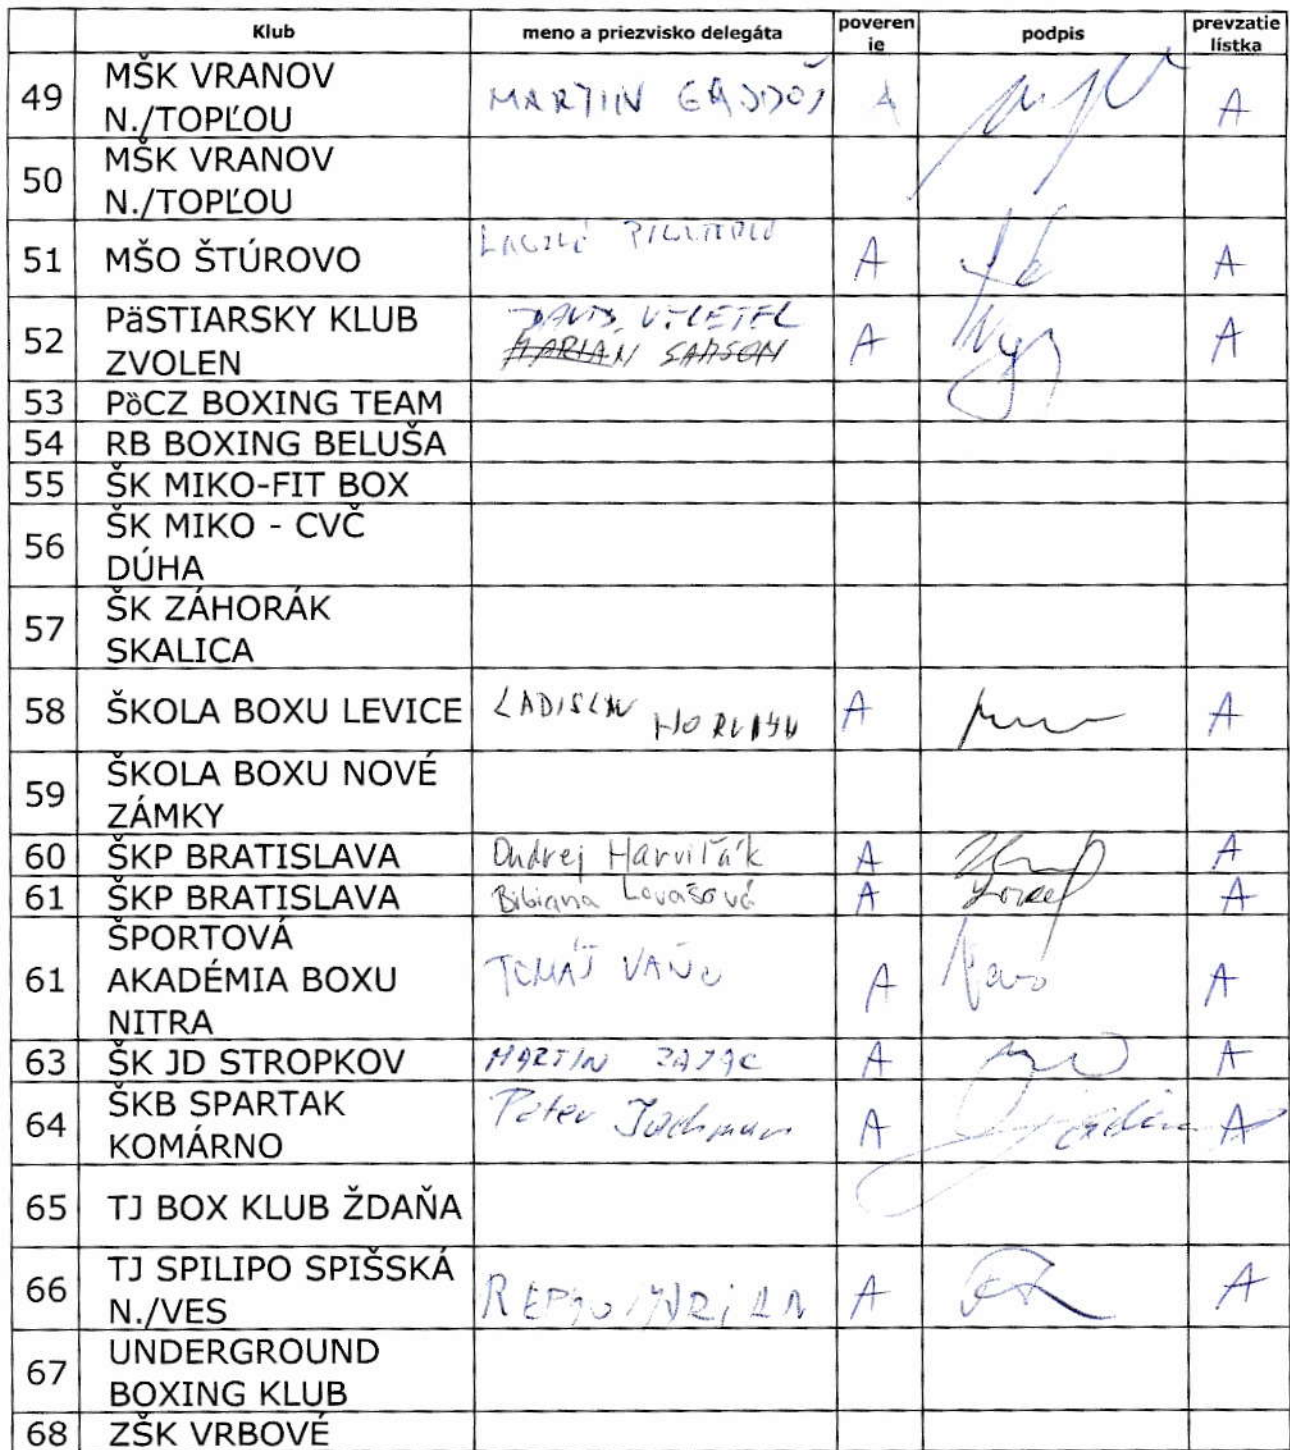 Klub meno a priezvisko delegáta poveren podpis prevzatie
ie lístka
49 MŠK VRANOV MARTIN A A
N./TOPĽOU
50 MŠK VRANOV
N./TOPĽOU
51 MŠO ŠTÚROVO A A
52 PäSTIARSKY KLUB DAVID A A
ZVOLEN MARIAN SAMSON
53 PòCZ BOXING TEAM
54 RB BOXING BELUŠA
55 ŠK MIKO-FIT BOX
56 ŠK MIKO - CVČ
DÚHA
57 ŠK ZÁHORÁK
SKALICA
58 ŠKOLA BOXU LEVICE LADISLAV A A
59 ŠKOLA BOXU NOVÉ
ZÁMKY
60 ŠKP BRATISLAVA Ondrej Harviľák A A
61 ŠKP BRATISLAVA Bibiana Lovašová A A
61 ŠPORTOVÁ
AKADÉMIA BOXU TOMÁŠ VAŇO A A
NITRA
63 ŠK JD STROPKOV MARTIN ZAJAC A A
64 ŠKB SPARTAK Peter A A
KOMÁRNO
65 TJ BOX KLUB ŽDAŇA
66 TJ SPILIPO SPIŠSKÁ A A
N./VES
67 UNDERGROUND
BOXING KLUB
68 ZŠK VRBOVÉ